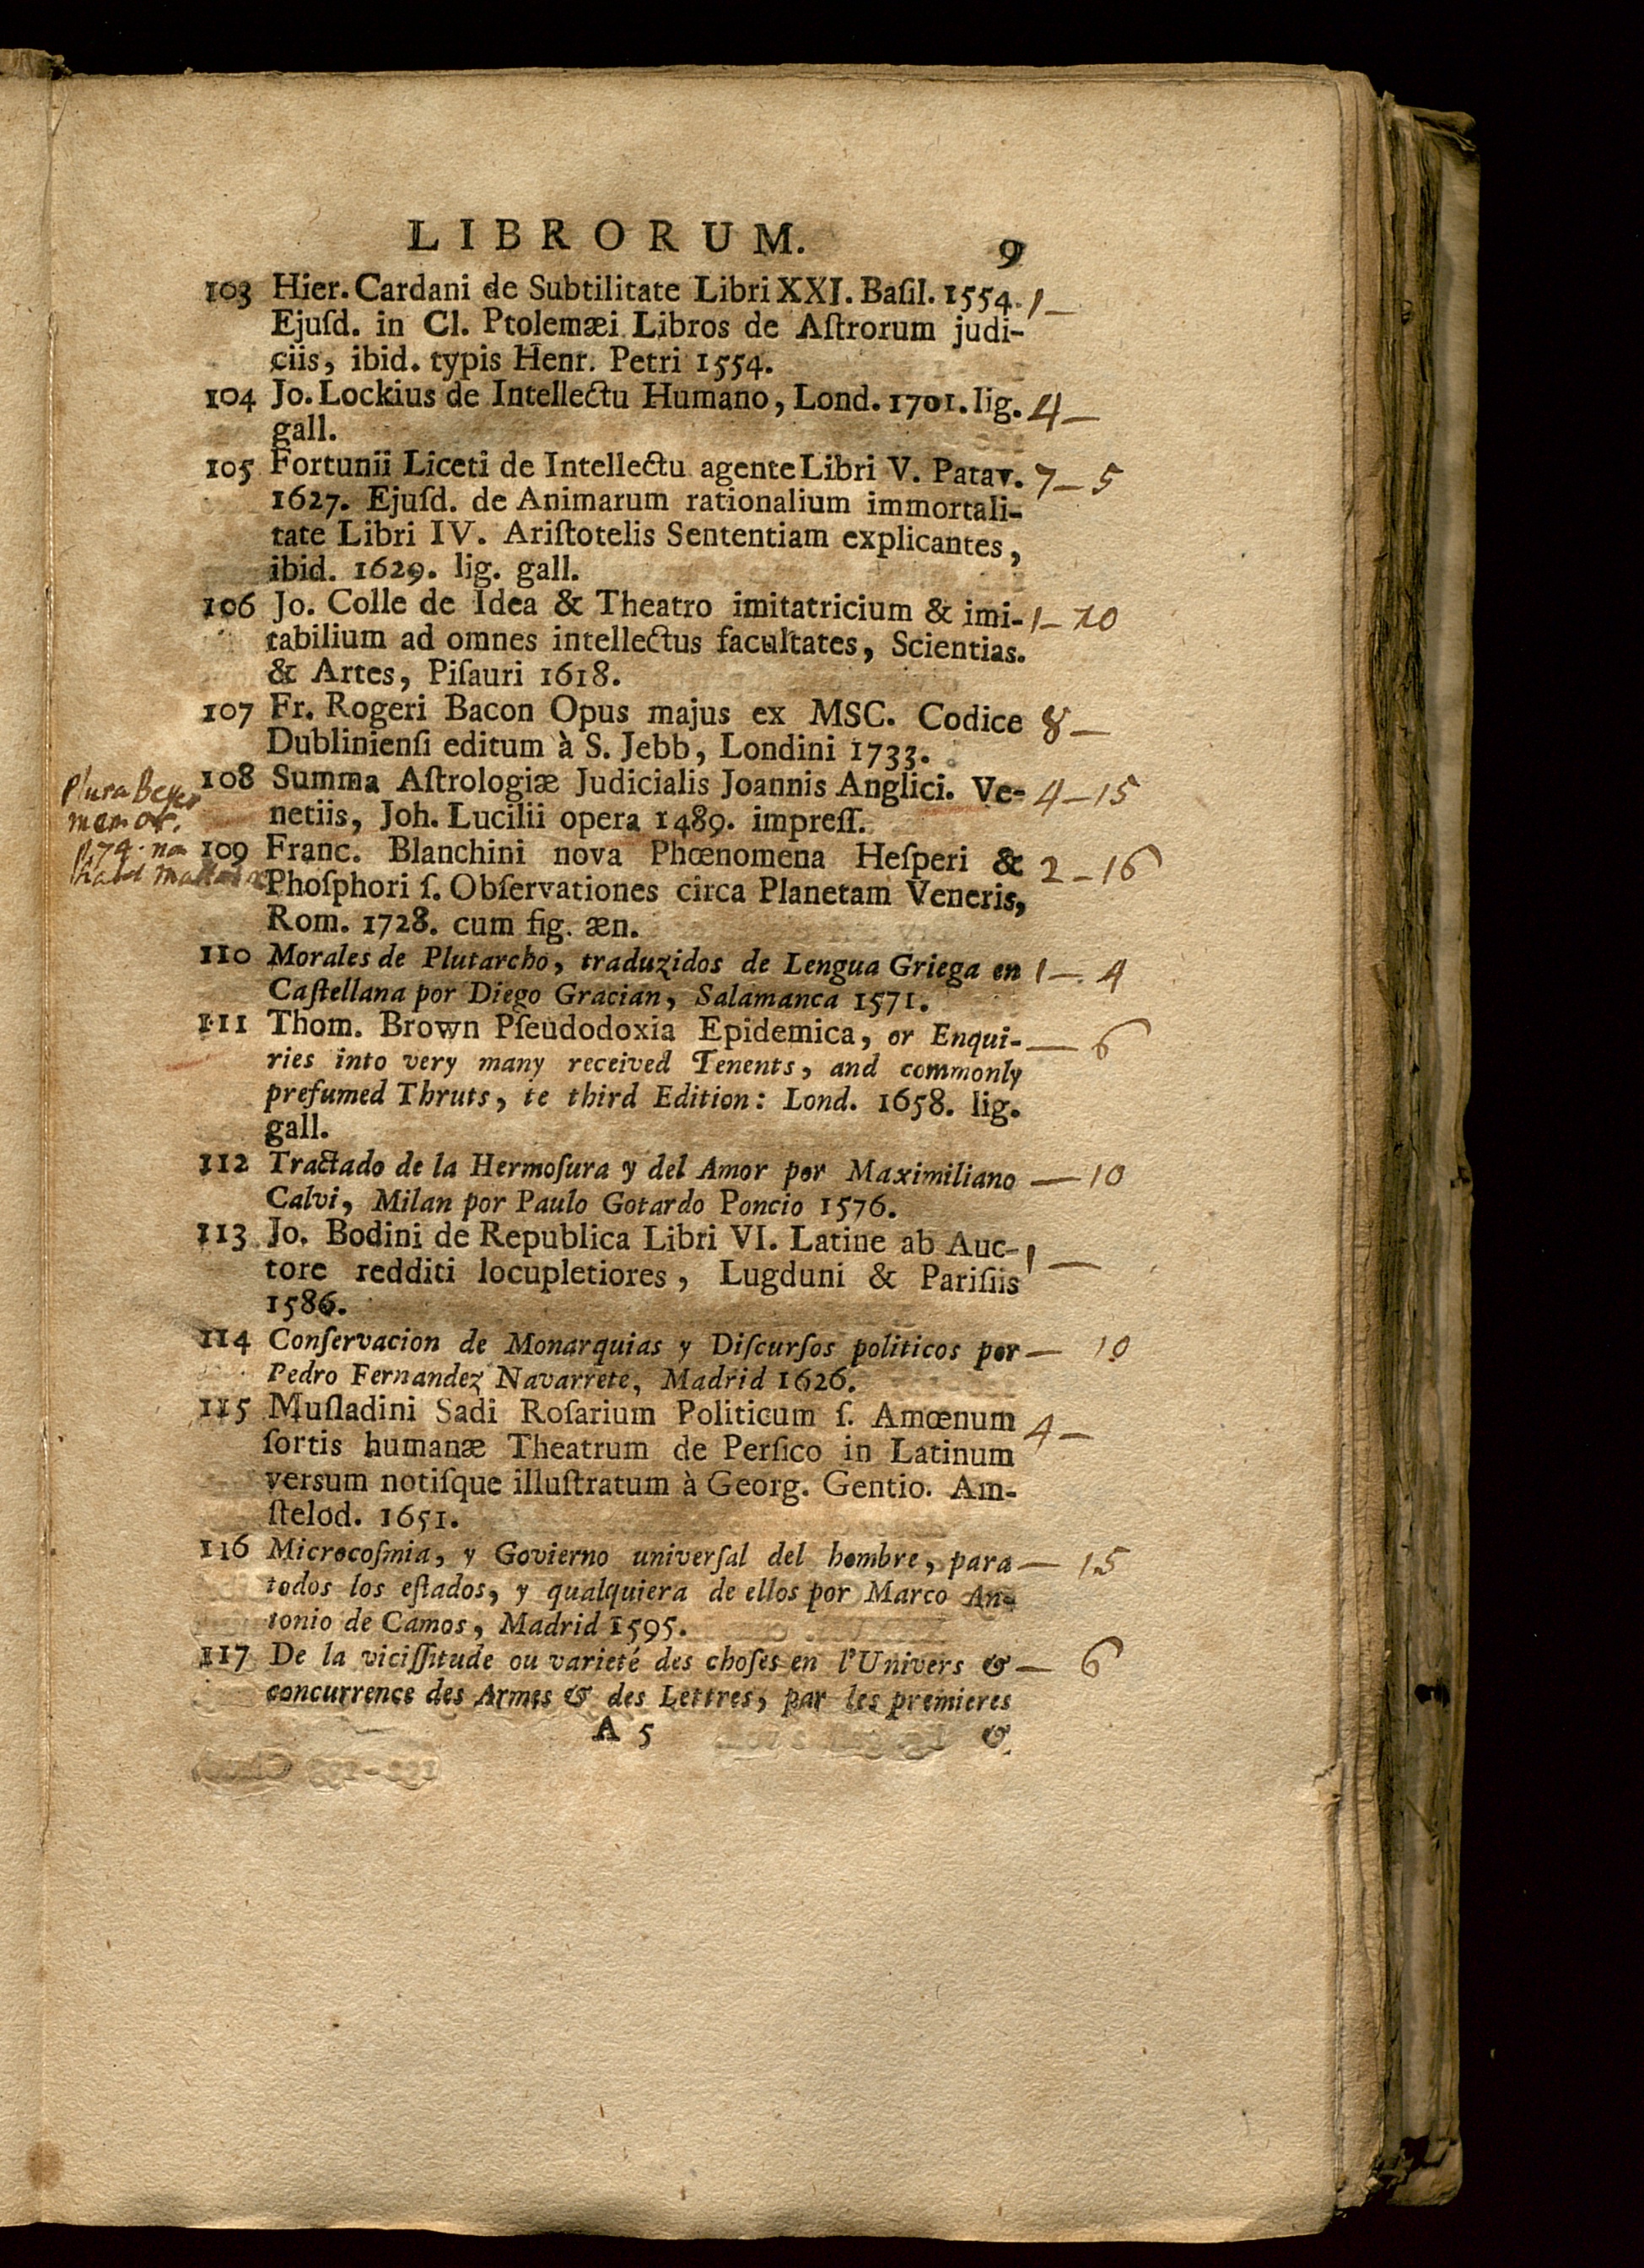 LIBRORUM. 9
103 Hier. Cardani de Subtilitate Libri XXI. Baſil. 1554. 1 —
Ejuſd. in Cl. Ptolemæi Libros de Aſtrorum judi-
ciis, ibid. typis Henr. Petri 1554.
104 Jo. Lockius de Intellectu Humano, Lond. 1701. lig. 4 —
gall.
105 Fortunii Liceti de Intellectu agente Libri V. Patav. 7 — 5
1627. Ejuſd. de Animarum rationalium immortali-
tate Libri IV. Ariſtotelis Sententiam explicantes,
ibid. 1629. lig. gall.
106 Jo. Colle de Idea & Theatro imitatricium & imi- 1 — 10
tabilium ad omnes intellectus facultates, Scientias.
& Artes, Piſauri 1618.
107 Fr. Rogeri Bacon Opus majus ex MSC. Codice 8 —
Dublinienſi editum à S. Jebb, Londini 1733.
Plura Beyer
108 Summa Aſtrologiæ Judicialis Joannis Anglici. Ve- 4 — 15
memor.
netiis, Joh. Lucilii opera 1489. impreſſ.
109 Franc. Blanchini nova Phœnomena Heſperi & 2 — 16
Phoſphori ſ. Obſervationes circa Planetam Veneris,
Rom. 1728. cum fig. æn.
110 Morales de Plutarcho, traduzidos de Lengua Griega en 1 — 4
Caſtellana por Diego Gracian, Salamanca 1571.
111 Thom. Brown Pſeudodoxia Epidemica, or Enqui- — 6
ries into very many received Tenents, and commonly
preſumed Thruts, te third Edition: Lond. 1658. lig.
gall.
112 Tractado de la Hermoſura y del Amor por Maximiliano — 10
Calvi, Milan por Paulo Gotardo Poncio 1576.
113 Jo. Bodini de Republica Libri VI. Latine ab Auc- 1 —
tore redditi locupletiores, Lugduni & Pariſiis
1586.
114 Conſervacion de Monarquias y Diſcurſos politicos por — 10
Pedro Fernandez Navarrete, Madrid 1626.
115 Muſladini Sadi Roſarium Politicum ſ. Amœnum 4 —
ſortis humanæ Theatrum de Perſico in Latinum
verſum notiſque illuſtratum à Georg. Gentio. Am-
ſtelod. 1651.
116 Microcoſmia, y Govierno univerſal del hombre, para — 15
todos los eſtados, y qualquiera de ellos por Marco An-
tonio de Camos, Madrid 1595.
117 De la viciſſitude ou varieté des choſes en l'Univers & — 6
concurrence des Armes & des Lettres, par les premieres
A 5 &